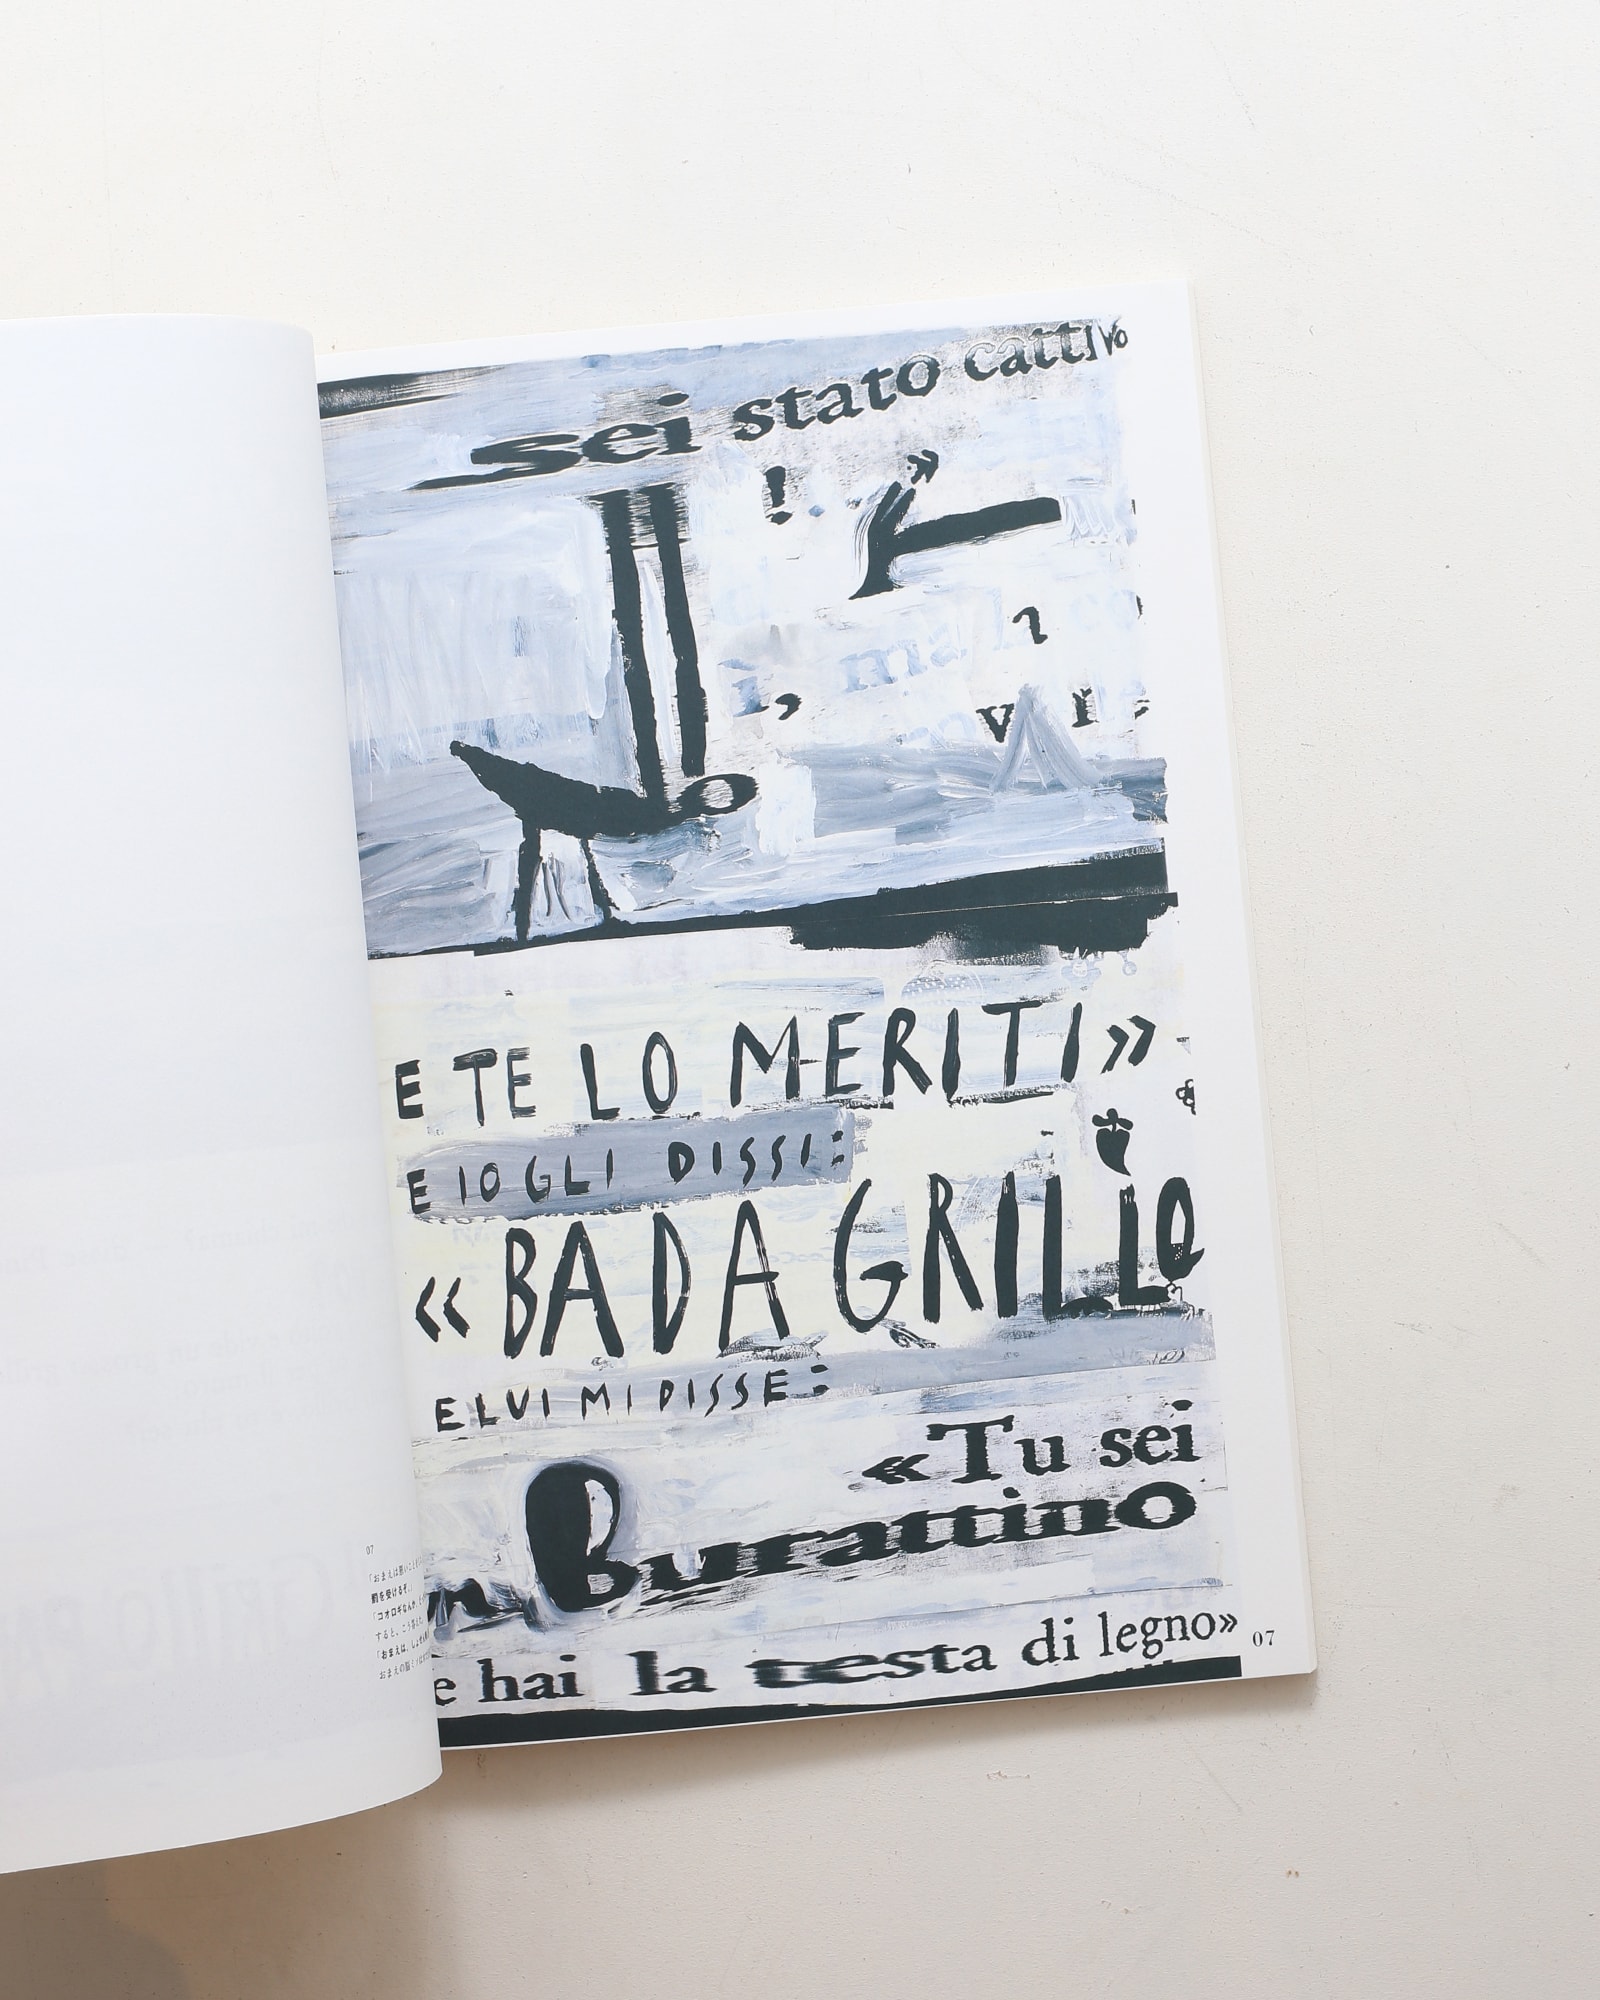 sei stato cattivo
!
»
i, ma la co
o
E TE LO MERITI»
E IO GLI DISSI:
«BADA GRILLO
E LUI MI DISSE:
«Tu sei
un Burattino
e hai la testa di legno»
07
07
「おまえは悪いことを
罰を受けるぞ。」
「コオロギなんか、
すると、こう答えた。
「おまえは、しょせん
おまえの脳ミソは